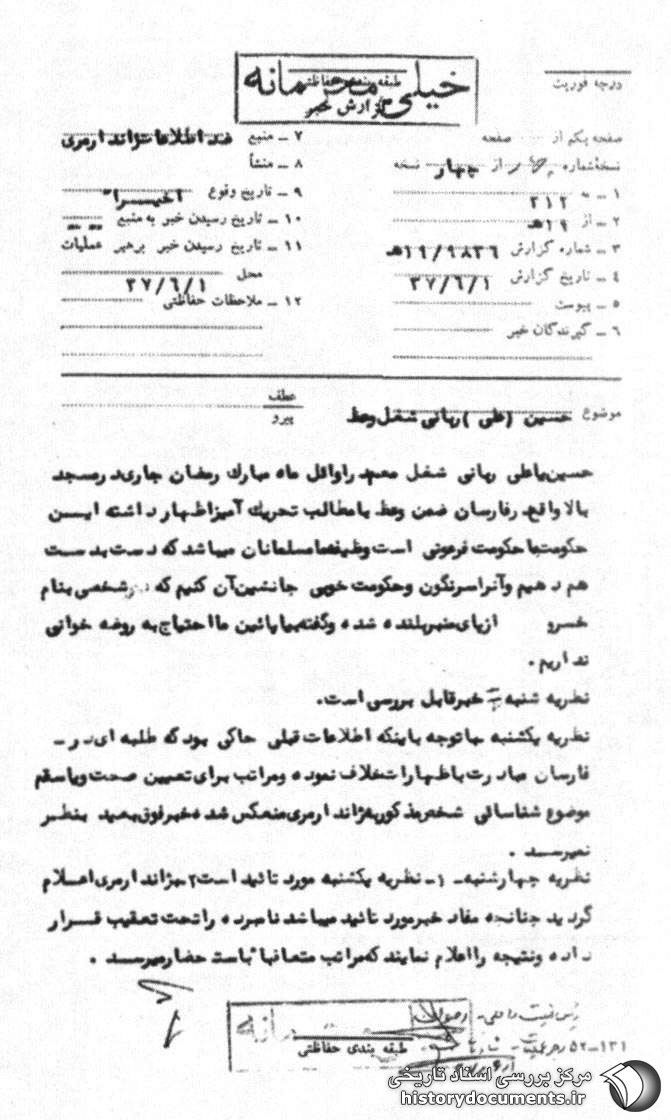 خیلی محرمانه
طبقه بندی حفاظتی
گزارش خبر
درجه فوریت
صفحه یکم از صفحه
نسخه شماره از چهار نسخه
۱ - به ۳۱۲
۲ - از ۱۹ هـ
۳ - شماره گزارش ۱۹/۹۸۳۶ هـ
۴ - تاریخ گزارش ۳۷/۶/۱
۵ - پیوست
۶ - گیرندگان خبر
۷ - منبع ضد اطلاعات ژاندارمری
۸ - منشأ
۹ - تاریخ وقوع اخیرا"
۱۰ - تاریخ رسیدن خبر به منبع
۱۱ - تاریخ رسیدن خبر برهبر عملیات
محل ۳۷/۶/۱
۱۲ - ملاحظات حفاظتی
موضوع حسین (علی) ربانی شغل وعظ
عطف
پیرو
حسین یا علی ربانی شغل معمم در اوائل ماه مبارک رمضان جاری در مسجد
بالا واقع در فارسان ضمن وعظ با مطالب تحریک آمیز اظهار داشته ایسن
حکومت ما حکومت فرعونی است وظیفه ما مسلمانان میباشد که دست بدست
هم دهیم و آنرا سرنگون و حکومت خوبی جانشین آن کنیم که شخصی بنام
خسرو از پای منبر بلند شده و گفته بیا پائین ما احتیاج به روضه خوانی
نداریم.
نظریه شنبه خبر قابل بررسی است.
نظریه یکشنبه با توجه باینکه اطلاعات قبلی حاکی بود که طلبه ای در -
فارسان مبادرت باظهارات خلاف نموده و مراتب برای تعیین صحت و یا سقم
موضوع شناسائی شخص مذکور به ژاندارمری منعکس شده خبر فوق بعید بنظر
نمیرسد.
نظریه چهارشنبه - ۱ - نظریه یکشنبه مورد تائید است ۲ - به ژاندارمری اعلام
گردید چنانچه مفاد خبر مورد تائید میباشد نامبرده را تحت تعقیب قرار
داده و نتیجه را اعلام نمایند که مراتب متعاقبا" باستحضار میرسد.
رئیس امنیت داخلی - رضوان
طبقه بندی حفاظتی
۱۳۱-۵۲
مرکز بررسی اسناد تاریخی
historydocuments.ir